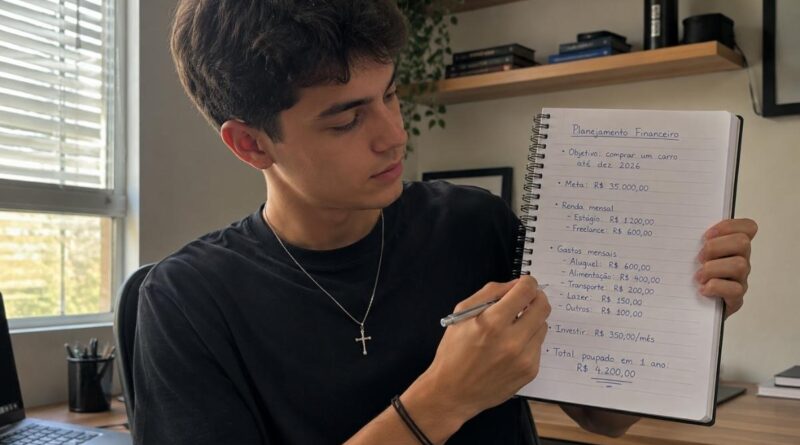 Planejamento Financeiro
• Objetivo: comprar um carro
até dez 2026
• Meta: R$ 35.000,00
• Renda mensal
- Estágio: R$ 1.200,00
- Freelance: R$ 600,00
• Gastos mensais
- Aluguel: R$ 600,00
- Alimentação: R$ 400,00
- Transporte: R$ 200,00
- Lazer: R$ 150,00
- Outros: R$ 100,00
• Investir: R$ 350,00/mês
• Total poupado em 1 ano:
R$ 4.200,00